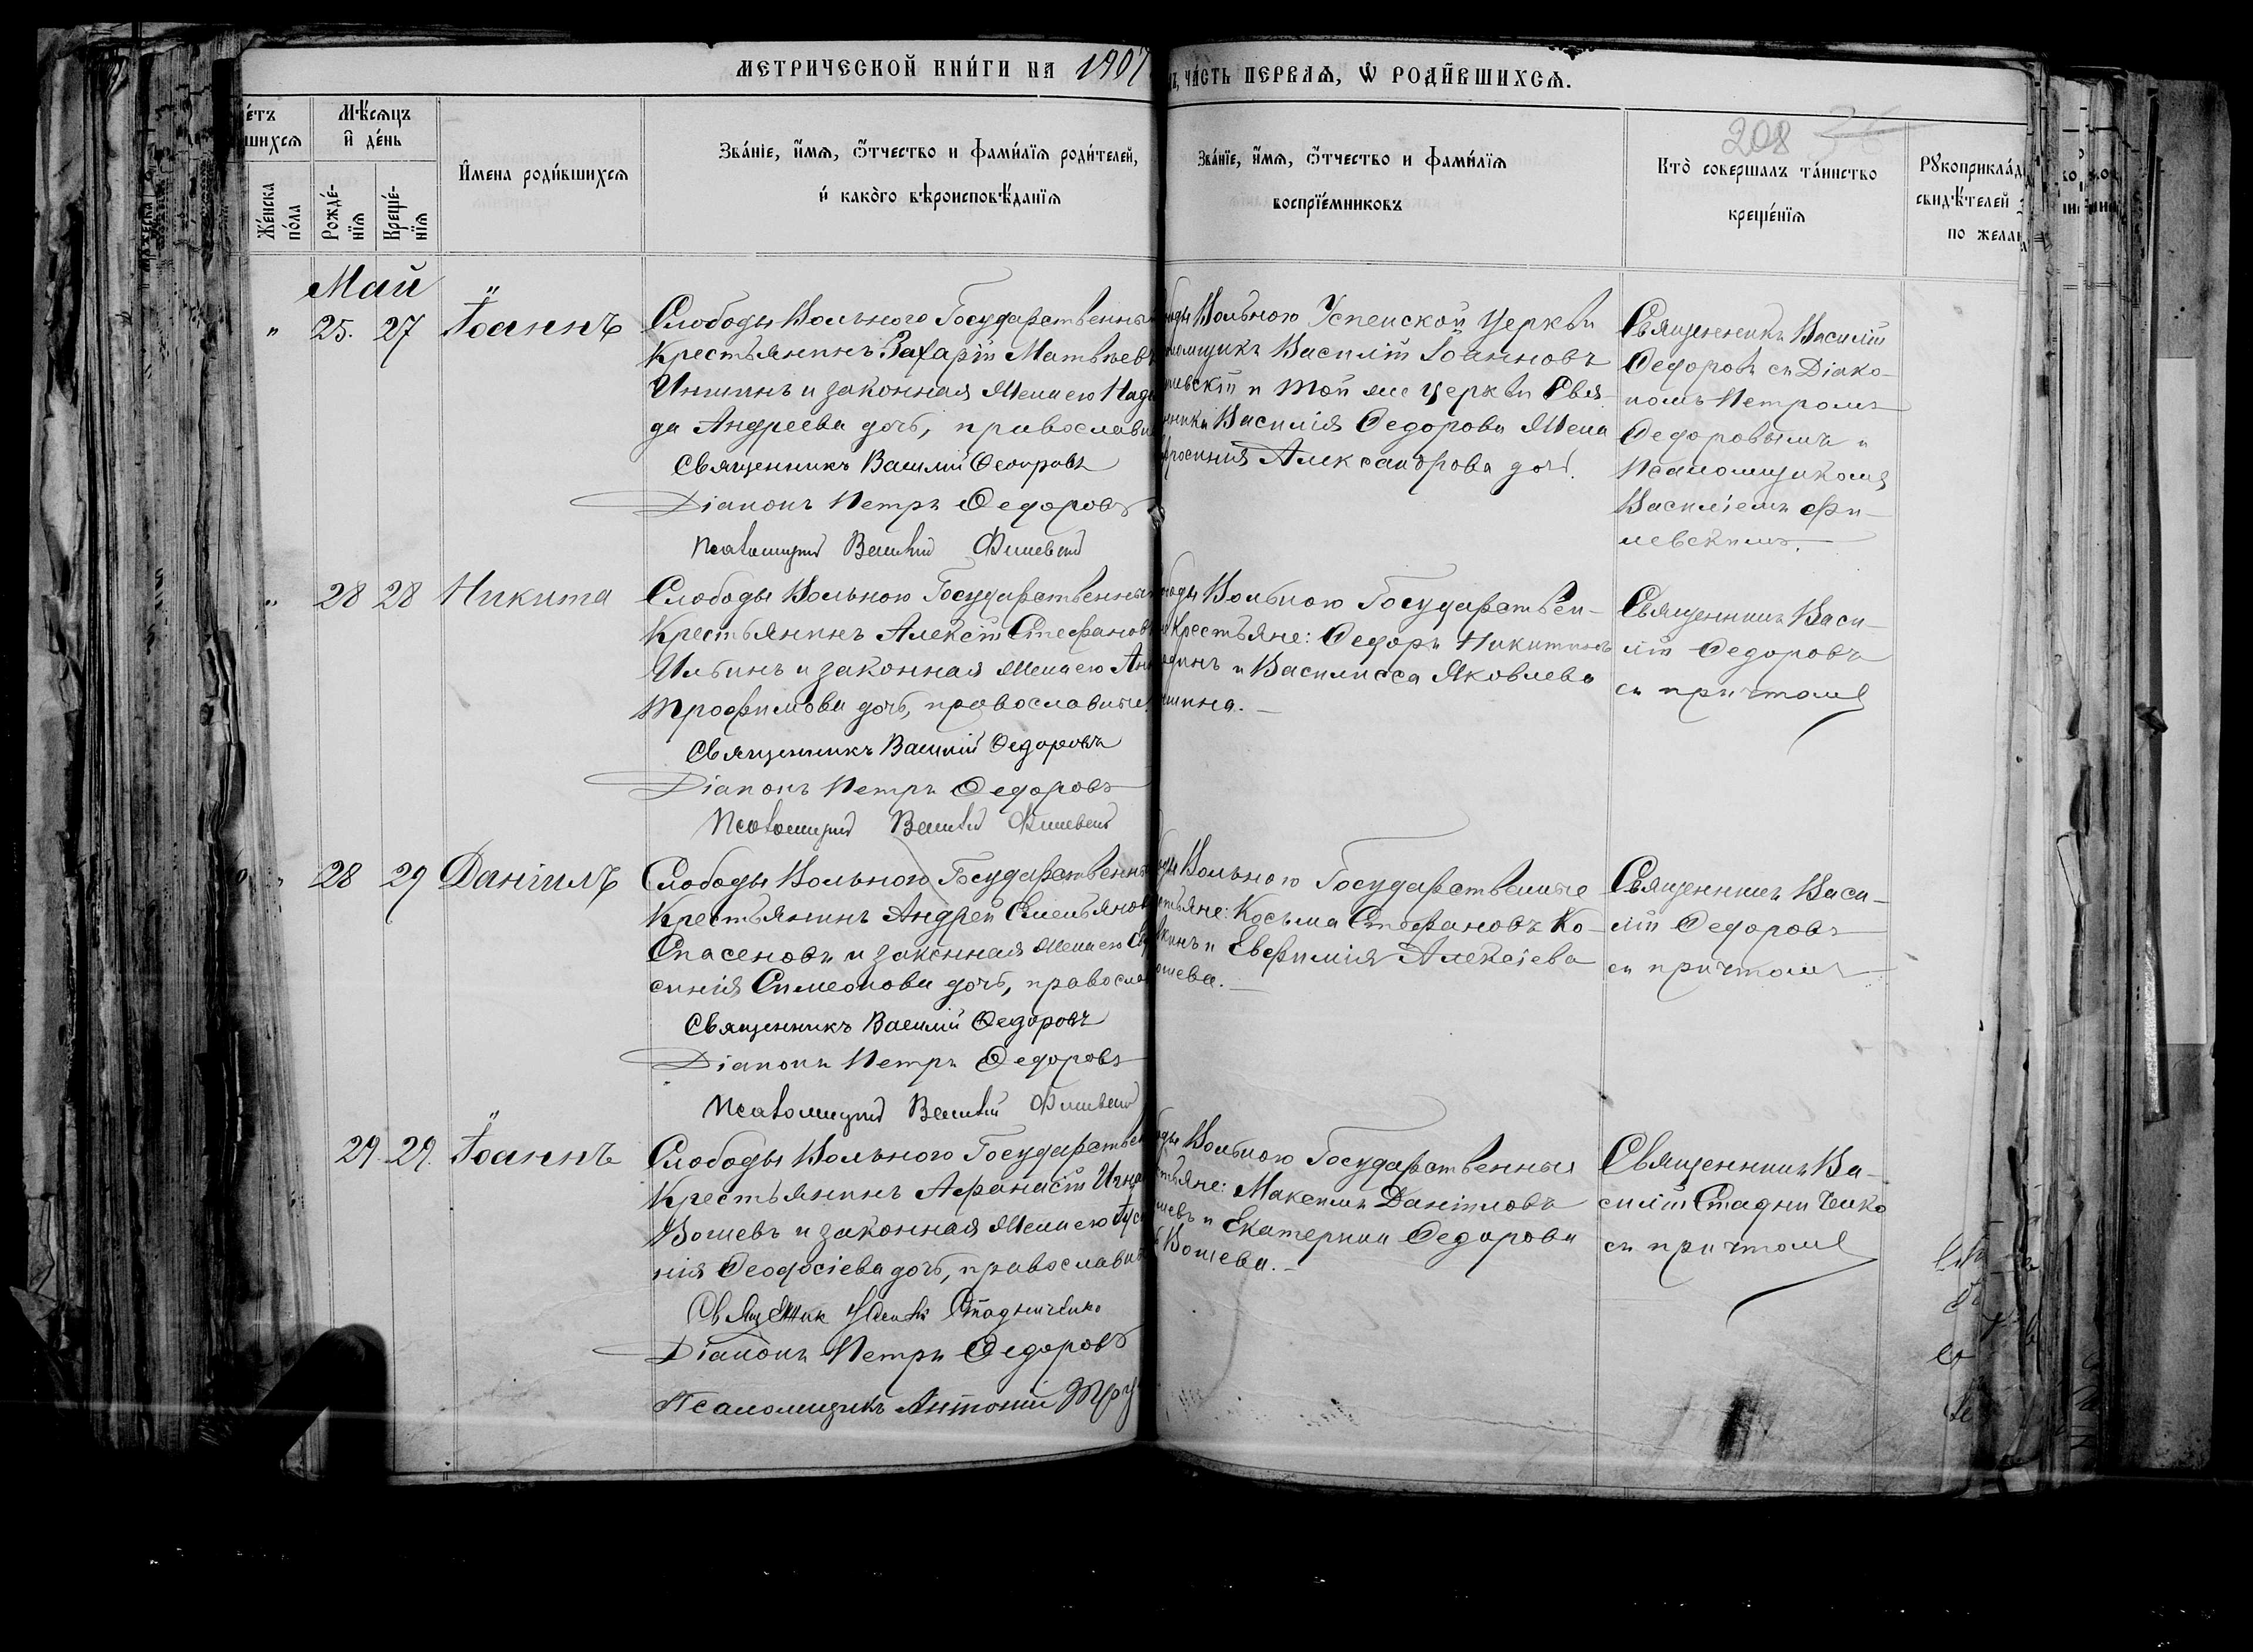 МЕТРИЧЕСКОЙ КНИ́ГИ НА 1907
ЧА́СТЬ ПЕРВАѦ, Ѡ҆ РОДИ́ВШИХСѦ.
208
Мѣ́сѧцъ
и҆ де́нь
Же́нска
по́ла
Рожде́-
нїѧ
Креще́-
нїѧ
И҆мена роди́вшихсѧ
Зва́нїе, и҆́мѧ, ѻ҆́тчество и фами́лїѧ роди́телей,
и҆ како́гѡ вѣроисповѣ́данїѧ
Зва́нїе, и҆́мѧ, ѻ҆́тчество и фами́лїѧ
воспрїе́мниковъ
Кто̀ совершалъ та́инство
креще́нїѧ
Рꙋкоприкла́д
свидѣ́телей
по жела
Май
" 25. 27 Іоаннъ
Слободы Вольного Государственный
Крестьянинъ Захарій Матвѣевъ
и законная жена его Наде
да Андреева дочь, православн
Священникъ Василій Ѳеодоровъ
Діаконъ Петръ Ѳедоровъ
Псаломщикъ Василій Филевскій
Вольного Успенской Церкви
Василій Іоанновъ
левскій и той же Церкви Свя
Василія Ѳедорова жена
Александрова дочь.
Священникъ Василій
Ѳедоровъ съ Діако-
номъ Петромъ
Ѳедоровымъ и
Псаломщикомъ
Василіемъ Фи-
левскимъ.
" 28 28 Никита
Слободы Вольного Государственный
Крестьянинъ Алексій Стефановъ
Ильинъ и законная жена его Анн
Трофимова дочь, православные
Священникъ Василій Ѳедоровъ
Діаконъ Петръ Ѳедоровъ
Псаломщикъ Василій Филевскій
Вольного Государствен-
Крестьяне: Ѳедоръ Никитинъ
и Василисса Яковлева
шина.
Священникъ Васи-
лій Ѳедоровъ
съ причтомъ
" 28 29 Даніилъ
Слободы Вольного Государственн
Крестьянинъ Андрей Емельянов
Спасеновъ и законная жена его Ев
синія Симеонова дочь, правосла
Священникъ Василій Ѳедоровъ
Діаконъ Петръ Ѳедоровъ
Псаломщикъ Василій Филевскій
Вольного Государственные
Косьма Стефановъ Ко-
и Евфимія Алексіева
шева.
Священникъ Васи-
лій Ѳедоровъ
съ причтомъ
29. 29. Іоаннъ
Слободы Вольного Государствен
Крестьянинъ Афанасій Игна
Вошевъ и законная жена его Іус
нія Ѳеодосіева дочь, православн
Священник Стадниченко
Діаконъ Петръ Ѳедоровъ
Псаломщикъ Антоній Тру
Вольного Государственныя
Максимъ Даніиловъ
и Екатерина Ѳедорова
Вошева.
Священникъ Ва-
силій Стадниченко
съ причтомъ